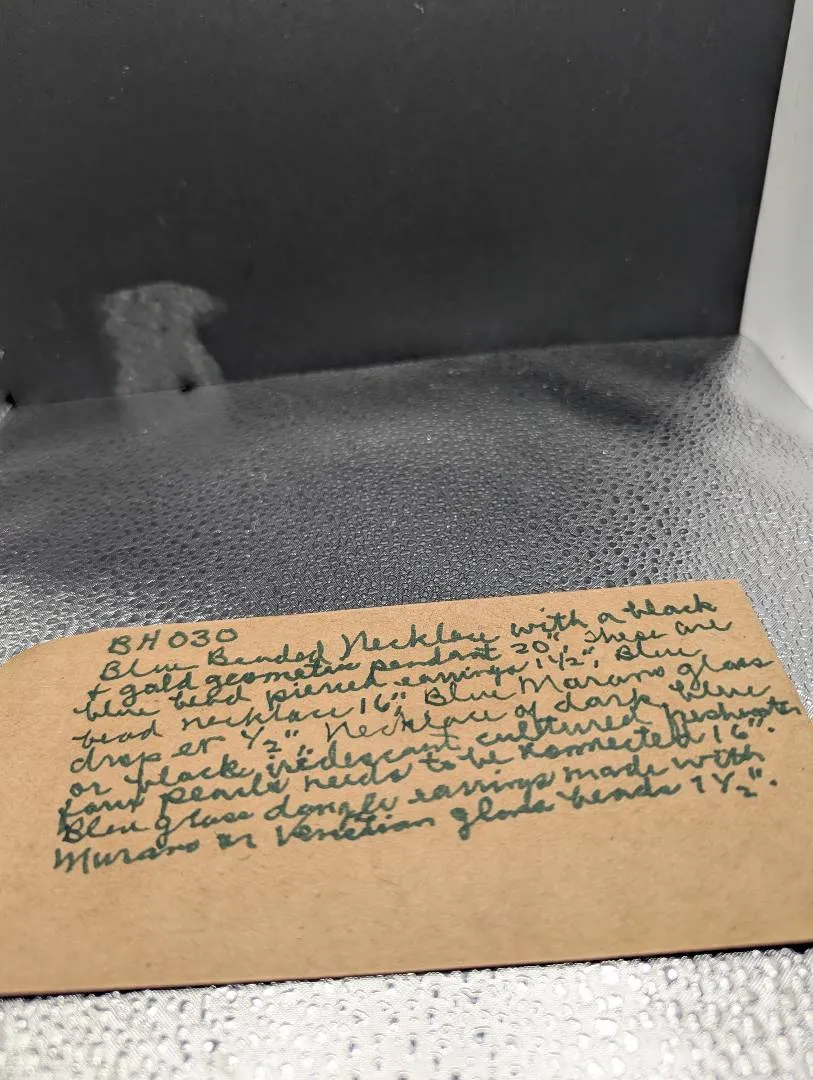 BH030
Blue Beaded Necklace with a black
+ gold geometric pendant 20", These are
blue bead pierced earrings 1 1/2", Blue
bead necklace 16", Blue Murano glass
drop er 1/2", Necklace of dark blue
or black iridescent cultured freshwater
faux pearls needs to be Konnected 16".
Blue glass dangle earrings made with
Murano or Venetian glass beads 1 1/2".